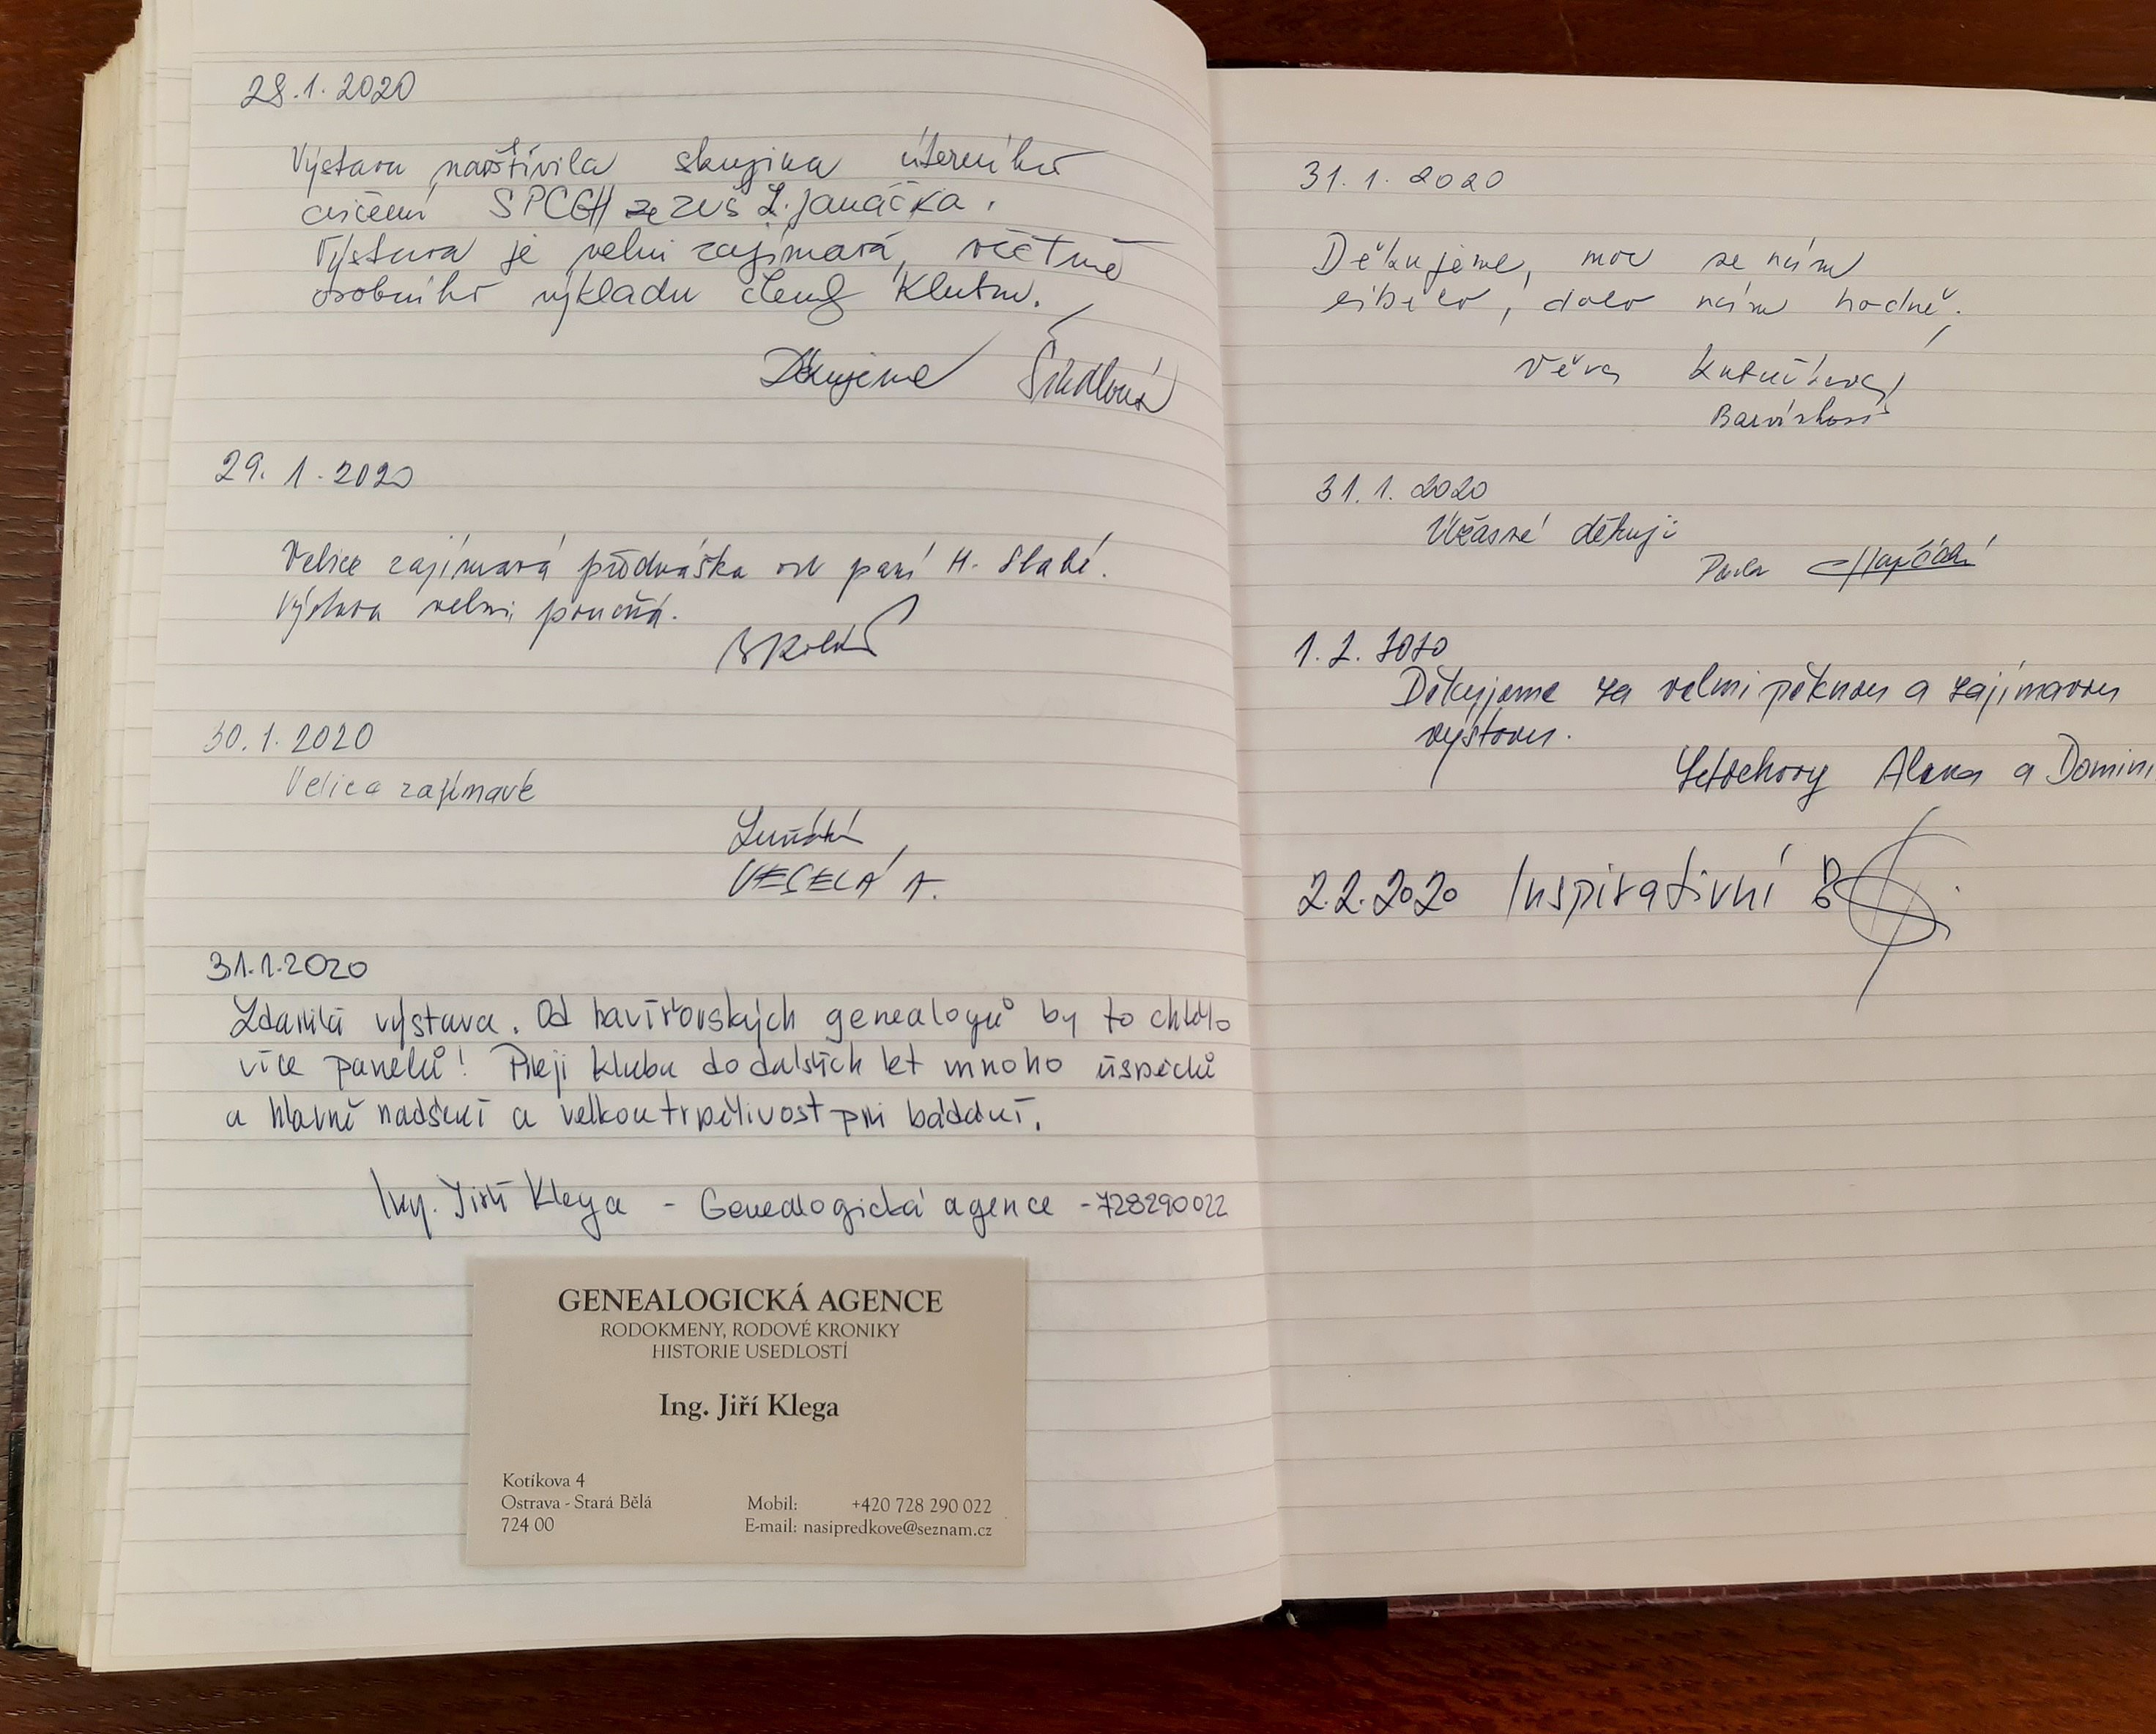 28.1.2020
Výstavu navštívila skupina úterního
cvičení SPCGH ze ZUŠ L. Janáčka.
Výstava je velmi zajímavá, včetně
osobního výkladu členů Klubu.
Děkujeme
29. 1. 2020
Velice zajímavá přednáška od paní H. Slabé.
Výstava velmi poučná.
30.1.2020
Velice zajímavé
VESELÁ A.
31.1.2020
Zdařilá výstava. Od havířovských genealogů by to chtělo
více panelů! Přeji klubu do dalších let mnoho úspěchů
a hlavně nadšení a velkou trpělivost při bádání.
Ing. Jiří Klega - Genealogická agence - 728290022
GENEALOGICKÁ AGENCE
RODOKMENY, RODOVÉ KRONIKY
HISTORIE USEDLOSTÍ
Ing. Jiří Klega
Kotíkova 4
Ostrava - Stará Bělá
724 00
Mobil: +420 728 290 022
E-mail: nasipredkove@seznam.cz
31. 1. 2020
Děkujeme, moc se nám
líbilo, dalo nám hodně.
Věra
31. 1. 2020
Úžasné děkuji
1. 2. 2020
Děkujeme za velmi pěknou a zajímavou
výstavu.
Alena a Domini
2.2.2020 Inspirativní